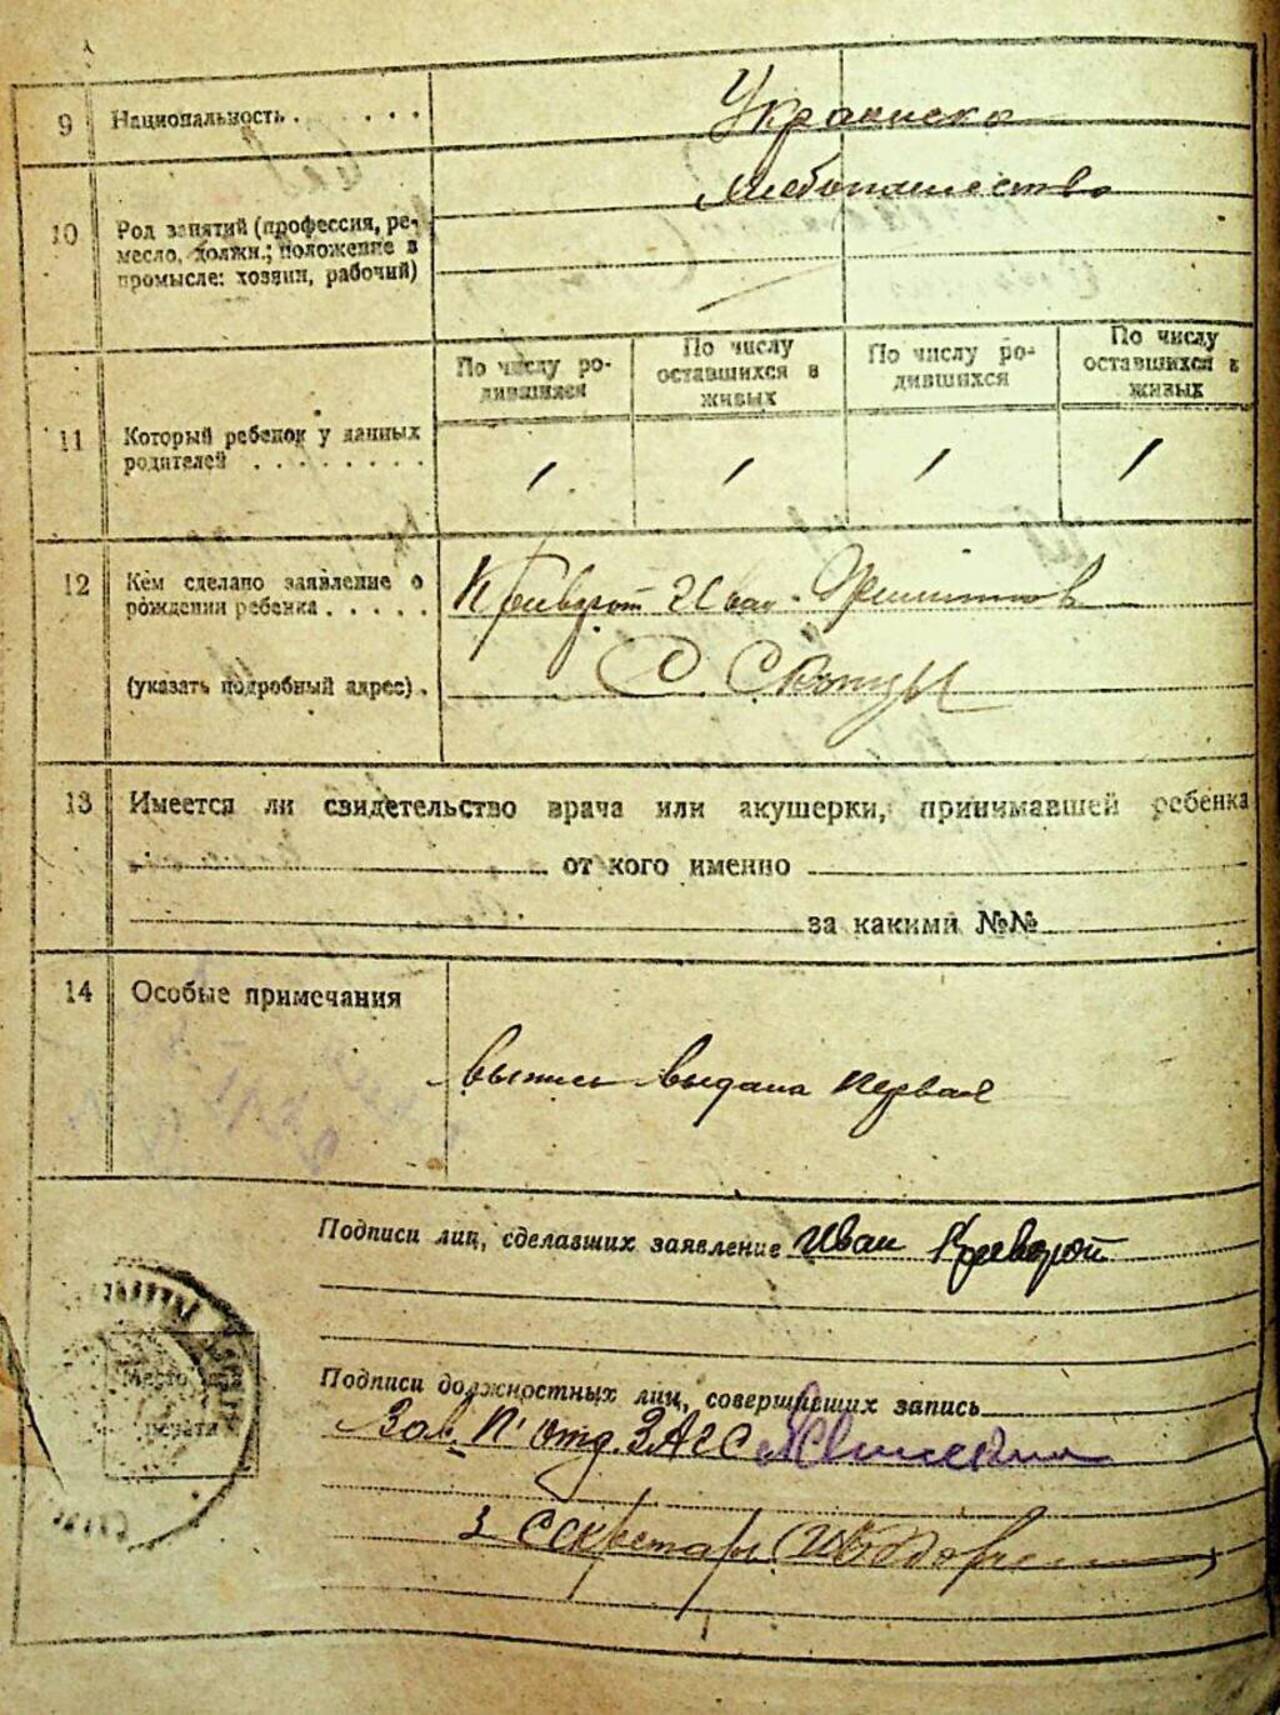 9 Национальность . . . . . Украинско
Хлебопашество
10 Род занятий (профессия, ре-
месло, должн.; положение в
промысле: хозяин, рабочий)
По числу ро-
дившихся
По числу
оставшихся в
живых
По числу ро-
дившихся
По числу
оставшихся в
живых
11 Который ребенок у данных
родителей . . . . . . . .
1 1 1 1
12 Кем сделано заявление о
рождении ребенка . . . . . Криворот Иван
(указать подробный адрес) . С.
13 Имеется ли свидетельство врача или акушерки, принимавшей ребенка
от кого именно
за какими №№
14 Особые примечания
выпись выдана первая
Подписи лиц, сделавших заявление Иван Криворот
Место для
печати
Подписи должностных лиц, совершивших запись
Зав. П' отд. ЗАГС
Секретарь